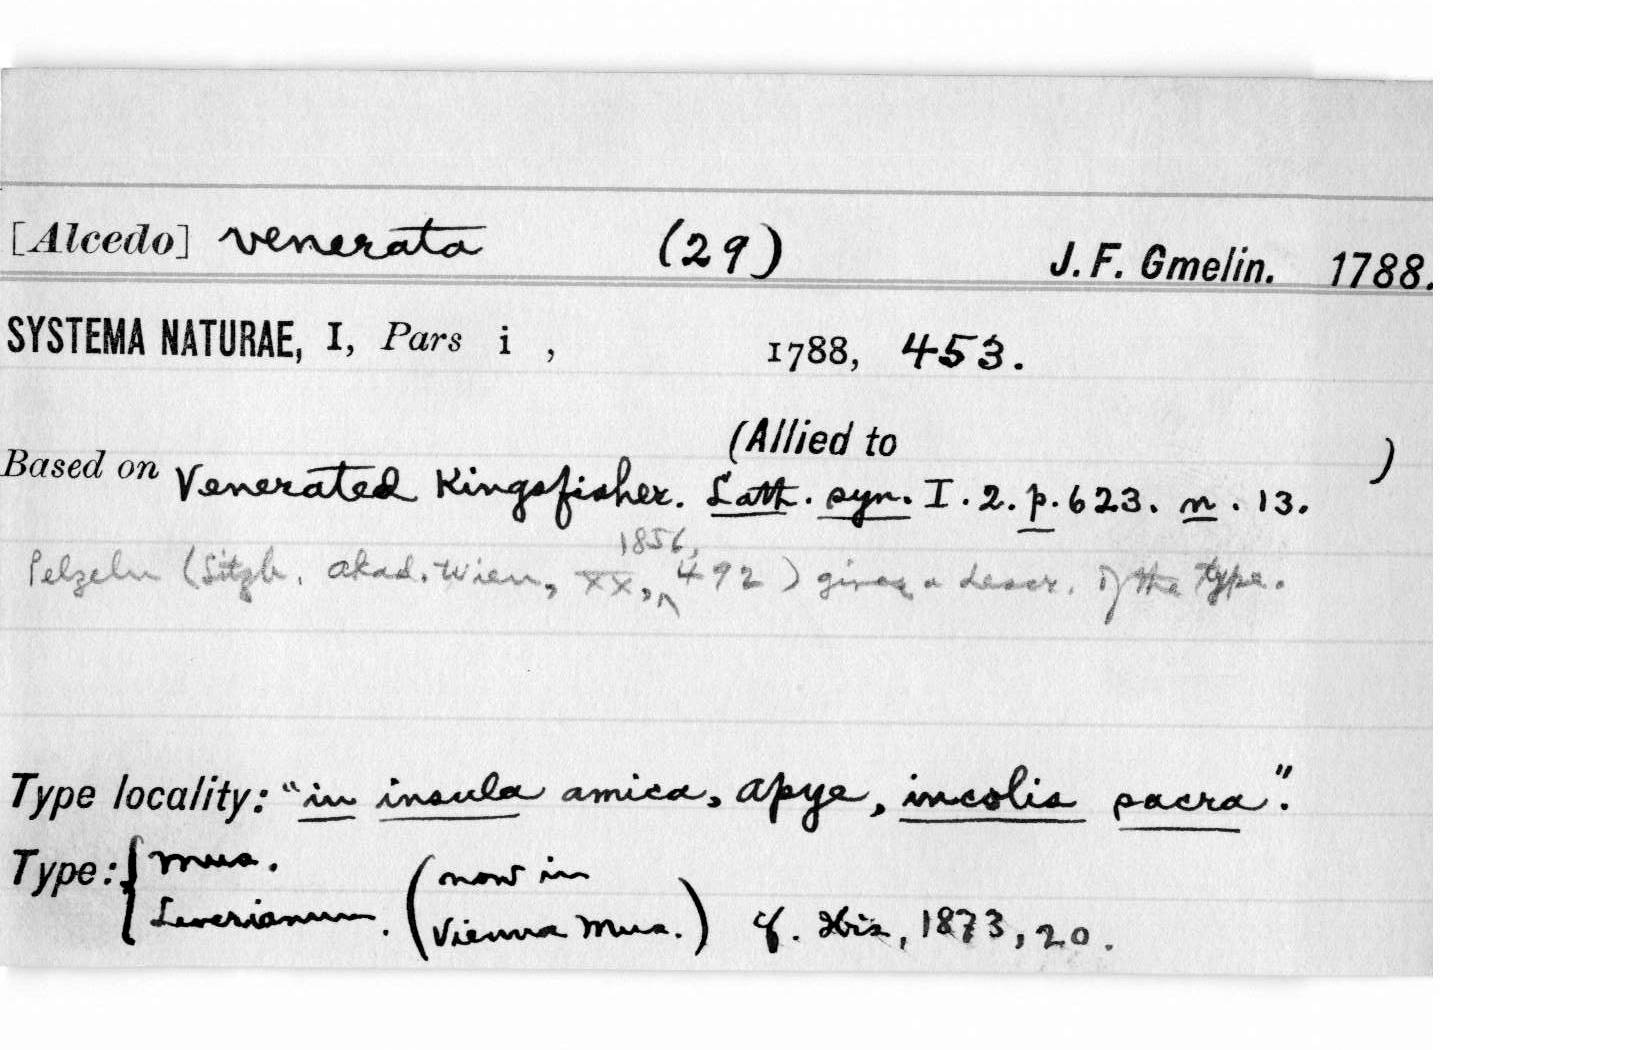 [Alcedo] venerata (29) J. F. Gmelin. 1788.
SYSTEMA NATURAE, I, Pars i , 1788, 453.
(Allied to )
Based on Venerated Kingsfisher. Lath. syn. I. 2. p. 623. n. 13.
1856,
Pelzeln (Sitzb. Akad. Wien, XX, ^ 492) gives a descr. of the type.
Type locality: "in insula amica, apye, incolis sacra".
Type: { Mus. (now in
Leverianum. Vienna Mus.) cf. Ibis, 1873, 20.